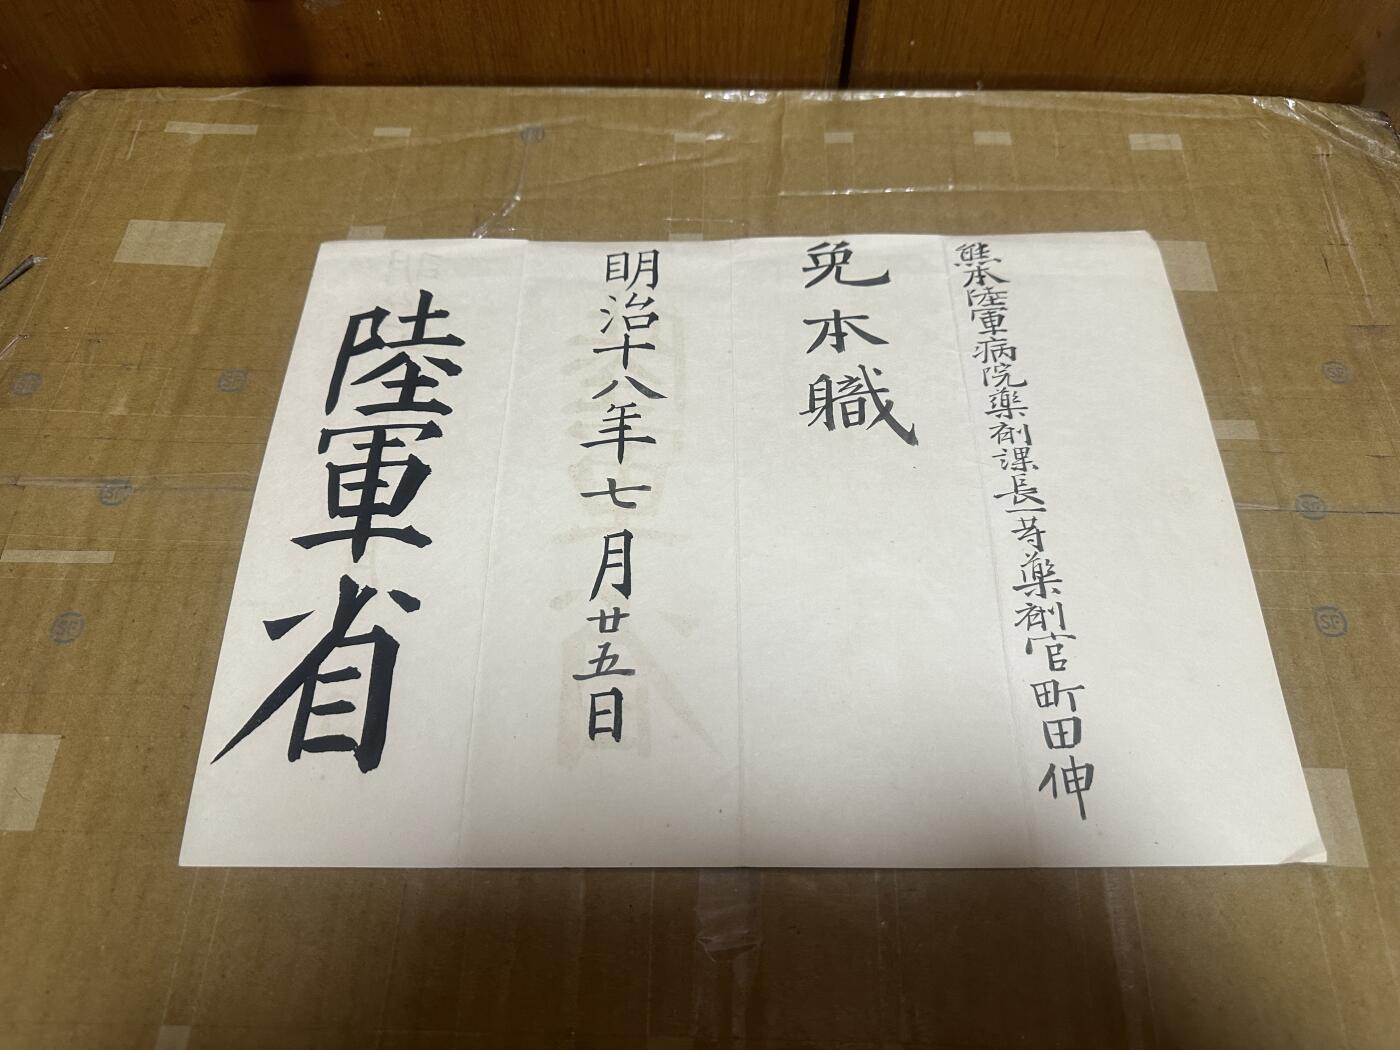 熊本陸軍病院薬剤課長一等薬剤官町田伸
免本職
明治十八年七月廿五日
陸軍省